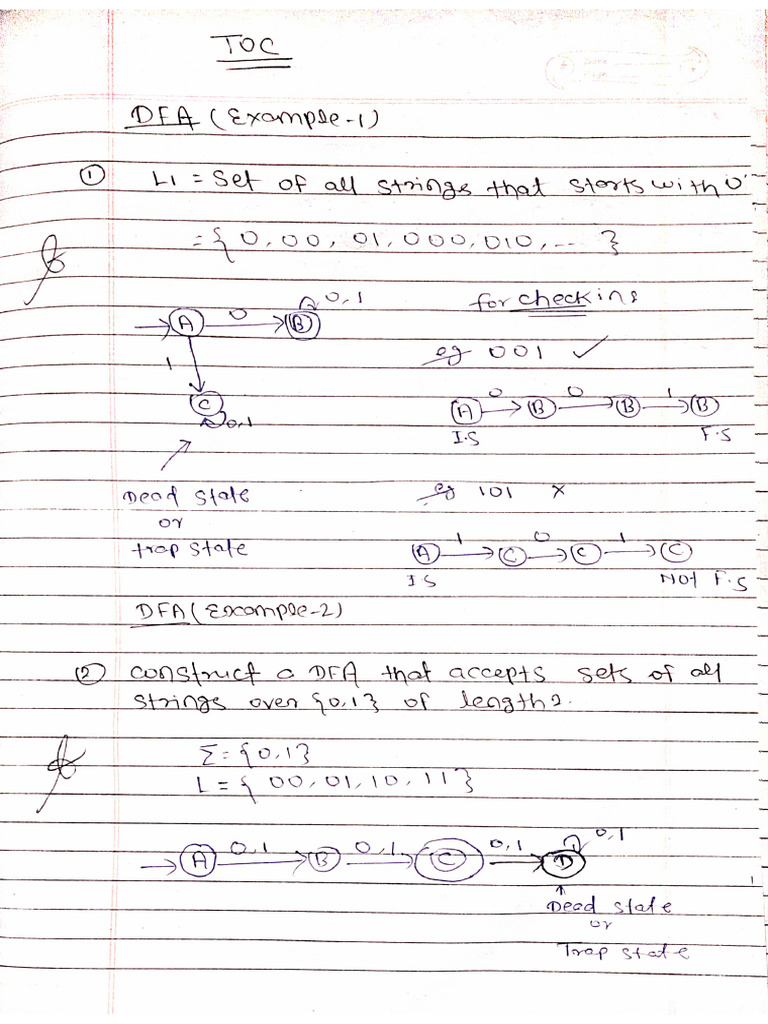 TOC
DFA (Example-1)
① L1 = Set of all strings that starts with 0'
= { 0, 00, 01, 000, 010, ... }
0,1
for checking
A 0 B
eg 001 ✓
1
C
0,1
A 0 B 0 B 1 B
I.S F.S
Dead state
or
trap state
eg 101 ×
A 1 C 0 C 1 C
I.S Not F.S
DFA (Example-2)
② Construct a DFA that accepts sets of all
strings over {0,1} of length 2.
Σ = {0,1}
L = { 00, 01, 10, 11 }
A 0,1 B 0,1 C 0,1 D 0,1
Dead state
or
Trap state